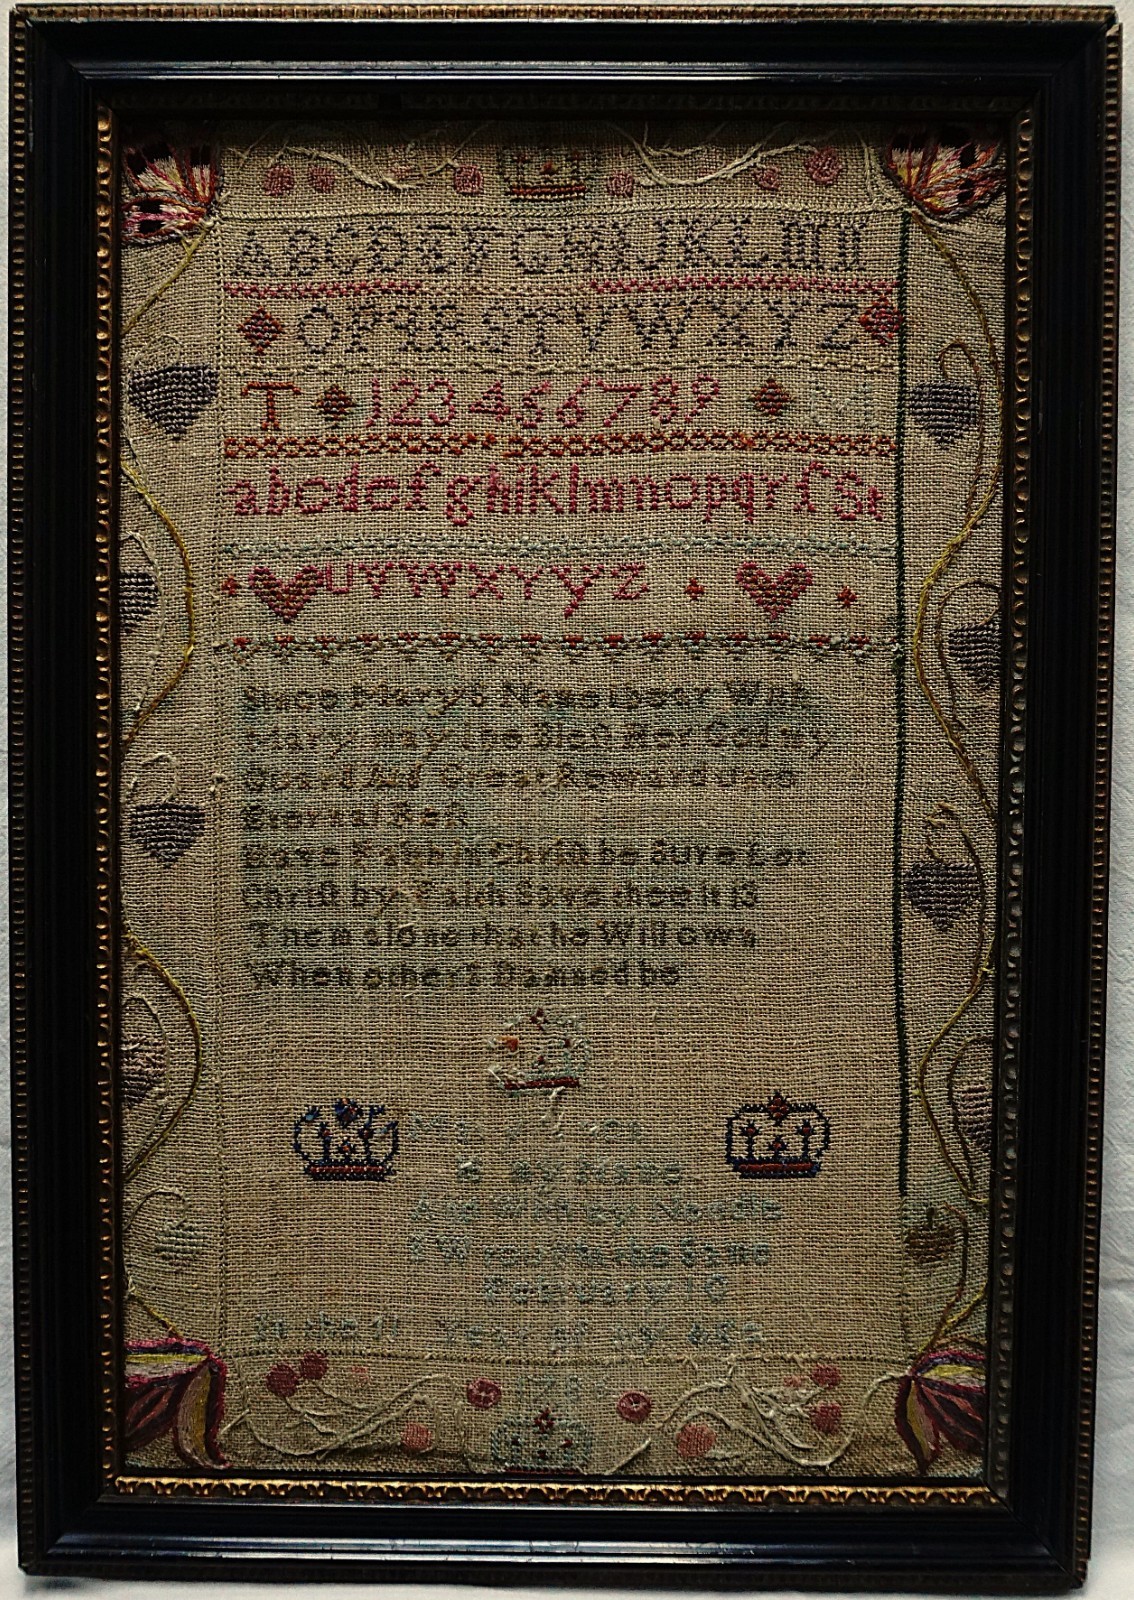 ABCDEFGHIJKLMN
OPqRSTVWXYZ
T 123456789 M
abcdefghiklmnopqrſst
uvwxyyz
Since Marys Name I bear With
Mary may I be Bleſt Her God my
Guard And Great Reward and
Eternal Reſt
Have Faith in Chriſt be Sure Let
Chriſt by Faith Save thee it is
Them alone that he Will own
When others Damned be
is my Name
And With my Needle
I Wrought the Same
February 10
In the 11 Year of my age
178